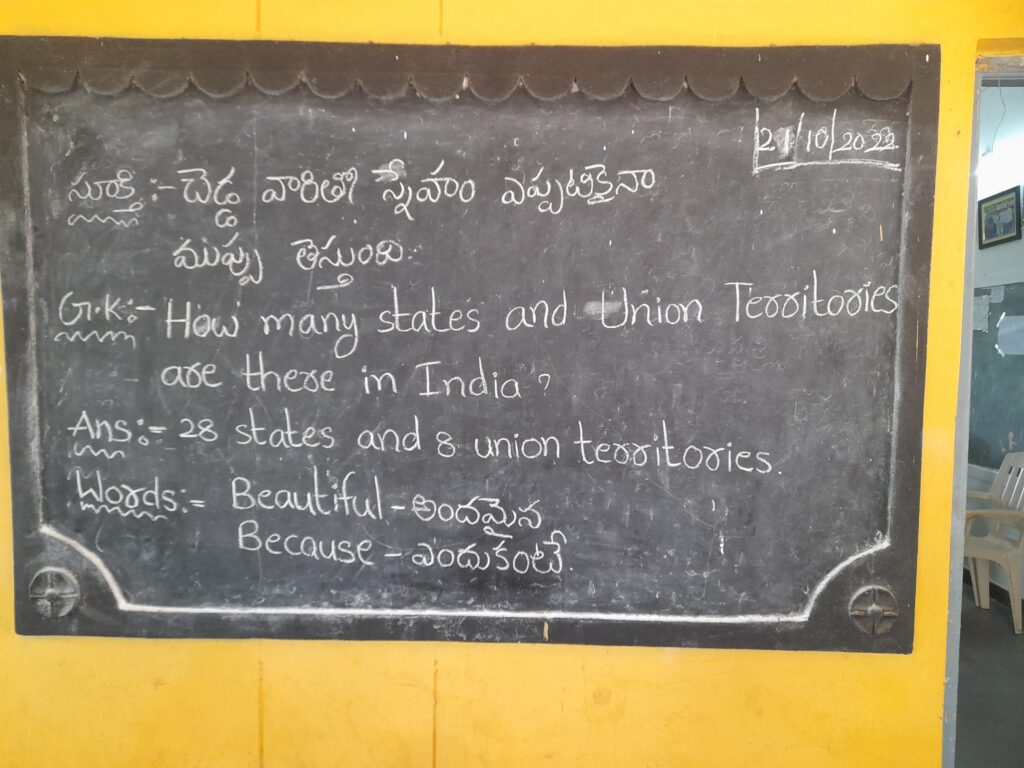 21/10/2022
సూక్తి :- చెడ్డ వారితో స్నేహం ఎప్పటికైనా
ముప్పు తెస్తుంది.
G.K:- How many states and Union Territories
are there in India ?
Ans:= 28 states and 8 union territories.
Words:= Beautiful - అందమైన
Because - ఎందుకంటే.